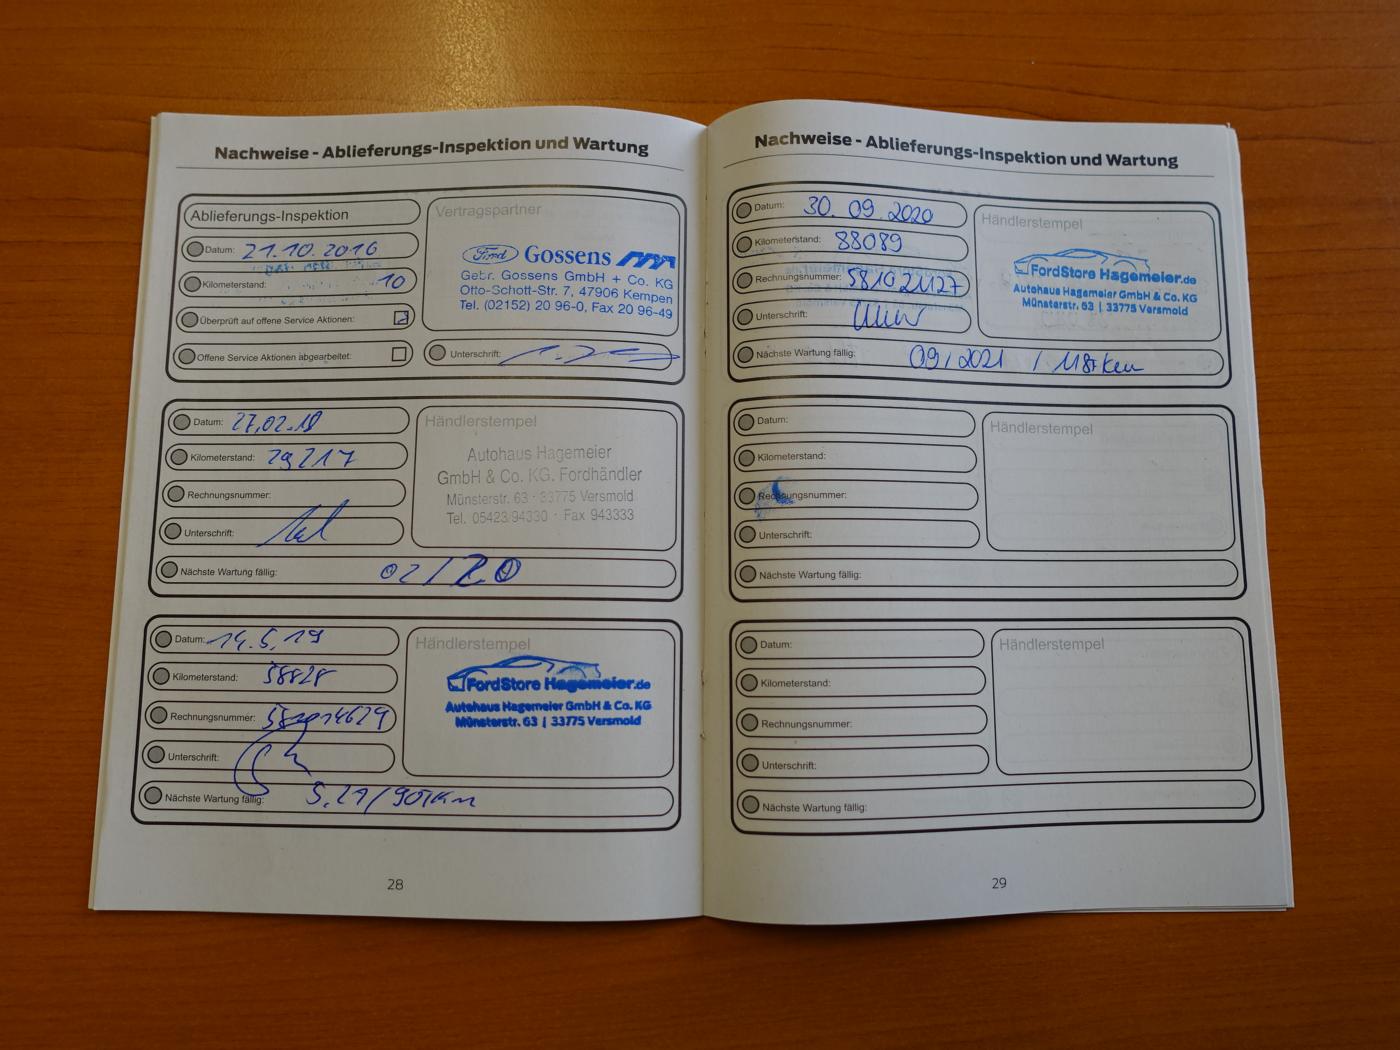 Nachweise - Ablieferungs-Inspektion und Wartung
Ablieferungs-Inspektion
Datum: 21.10.2016
Kilometerstand: 10
Überprüft auf offene Service Aktionen:
Offene Service Aktionen abgearbeitet:
Vertragspartner
Ford Gossens
Gebr. Gossens GmbH + Co. KG
Otto-Schott-Str. 7, 47906 Kempen
Tel. (02152) 20 96-0, Fax 20 96-49
Unterschrift:
Datum: 27.02.18
Kilometerstand: 29217
Rechnungsnummer:
Unterschrift:
Nächste Wartung fällig: 02/20
Händlerstempel
Autohaus Hagemeier
GmbH & Co. KG. Fordhändler
Münsterstr. 63 · 33775 Versmold
Tel. 05423/94330 · Fax 943333
Datum: 14.5.19
Kilometerstand: 58828
Rechnungsnummer:
Unterschrift:
Nächste Wartung fällig: 5.21/90TKm
Händlerstempel
FordStore Hagemeier.de
Autohaus Hagemeier GmbH & Co. KG
Münsterstr. 63 | 33775 Versmold
28
Nachweise - Ablieferungs-Inspektion und Wartung
Datum: 30.09.2020
Kilometerstand: 88089
Rechnungsnummer: 581021127
Unterschrift:
Nächste Wartung fällig: 09/2021 / 118tkm
Händlerstempel
FordStore Hagemeier.de
Autohaus Hagemeier GmbH & Co. KG
Münsterstr. 63 | 33775 Versmold
Datum:
Kilometerstand:
Rechnungsnummer:
Unterschrift:
Nächste Wartung fällig:
Händlerstempel
Datum:
Kilometerstand:
Rechnungsnummer:
Unterschrift:
Nächste Wartung fällig:
Händlerstempel
29